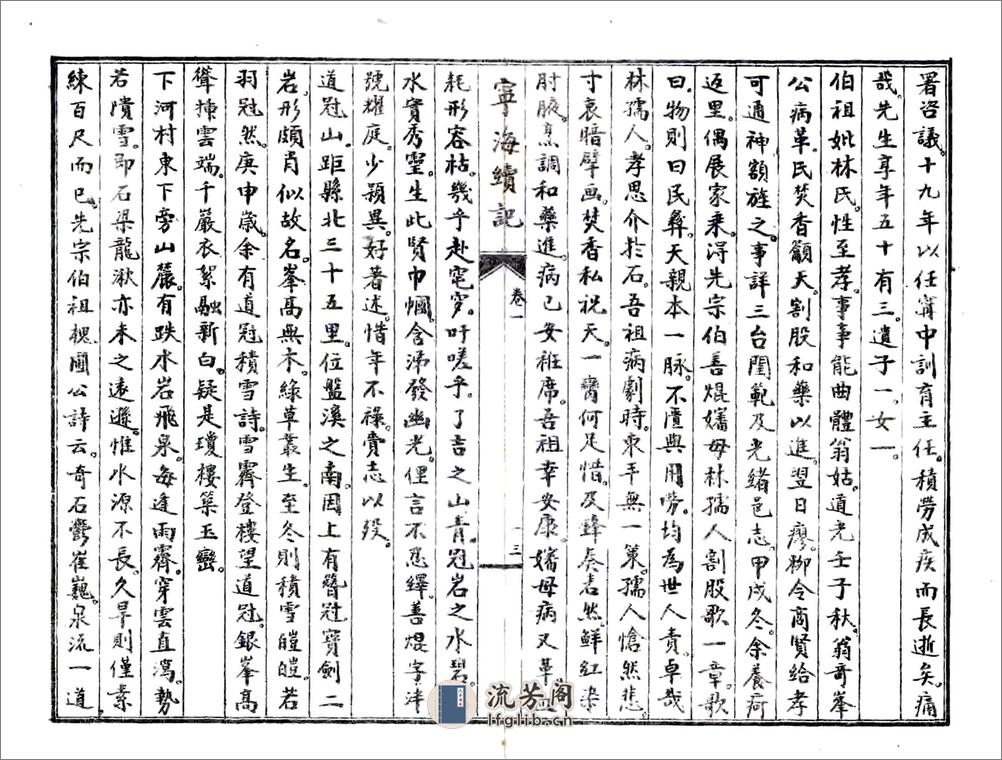 署咨議。十九年以任甯中訓育主任。積勞成疾而長逝矣。痛
哉。先生享年五十有三。遺子一。女一。
伯祖妣林氏。性至孝。事事能曲體翁姑。道光壬子秋。翁奇峯
公病革。氏焚香籲天。割股和藥以進。翌日瘳。柳令商賢給孝
可通神額旌之。事詳三台閨範及光緒邑志。甲戌冬。余養疴
返里。偶展家乘。得先宗伯善焜嬸母林孺人割股歌一章。歌
曰。物則曰民彝。天親本一脉。不匱與用勞。均為世人責。卓哉
林孺人。孝思介於石。吾祖病劇時。東平無一策。孺人愴然悲。
寸衷暗擘畫。焚香私祝天。一臠何足惜。及鋒奏砉然。鮮紅染
肘腋。烹調和藥進。病已安袵席。吾祖幸安康。嬸母病又革。
寧海續記
卷一
三
耗形容枯。幾乎赴窀穸。吁嗟乎。了言之山青。冠岩之水碧。
水實秀靈。生此賢巾幗。含涕發幽光。俚言不忍繹。善焜字泮
號耀庭。少穎異。好著述。惜年不祿。賫志以歿。
道冠山。距縣北三十五里。位盤溪之南。因上有簪冠寶劍二
岩。形頗肖似故名。峯高無木。綠草叢生。至冬則積雪皚皚。若
羽冠然。庚申歲。余有道冠積雪詩。雪霽登樓望道冠。銀峯高
聳揀雲端。千嚴衣絮融新白。疑是瓊樓築玉巒。
下河村東下旁山麓。有跌水岩飛泉。每逢雨霽。穿雲直瀉。勢
若濆雪。即石梁龍湫亦未之遠遜。惟水源不長。久旱則僅素
練百尺而已。先宗伯祖槐圃公詩云。奇石鬱崔巍。泉流一道
流芳阁
lfglib.cn